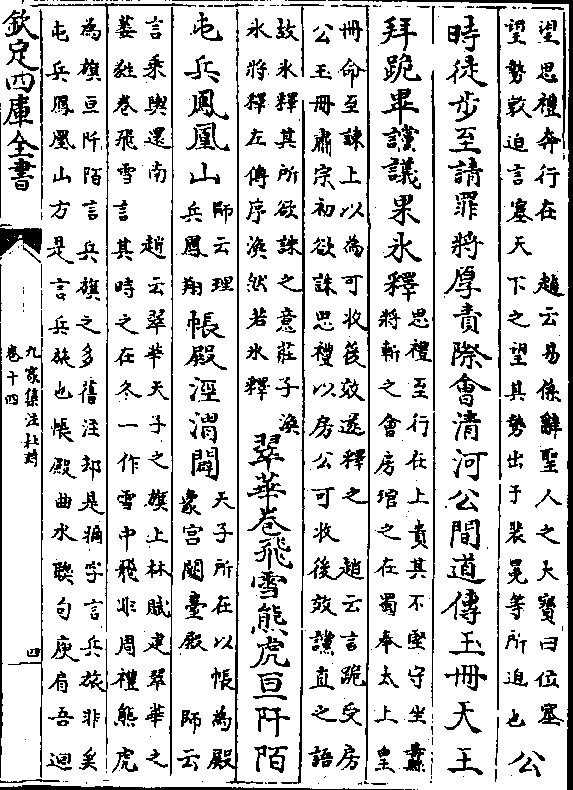 望思禮奔行在　趙云易係辭聖人之大寳曰位塞
望勢敦迫言塞天下之望其勢出于裴冕等所迫也公
時徒步至請罪將厚責際會清河公間道傳玉冊天王
拜跪畢讜議果氷釋思禮至行在上責其不堅守坐纛
將斬之會房琯之在蜀奉太上皇
冊命至諫上以為可收後效遂釋之　趙云言跪受房
公玉冊肅宗初欲誅思禮以房公可收後效讜直之語
故氷釋其所欲誅之意莊子渙
氷將釋左傳序渙然若氷釋翠華卷飛雪熊虎亘阡陌
屯兵鳳凰山師云理
兵鳳翔帳殿涇渭闢天子所在以帳為殿
象宮闕臺殿　師云
言乘輿還南　趙云翠華天子之旗上林賦建翠華之
葳蕤卷飛雪言其時之在冬一作雪中飛非周禮熊虎
為旗亘阡陌言兵旗之多舊注却是猶字言兵旅非矣
屯兵鳳凰山方是言兵旅也帳殿曲水聯句庾肩吾迴
欽定四庫全書
九家集注杜詩
卷十四
四